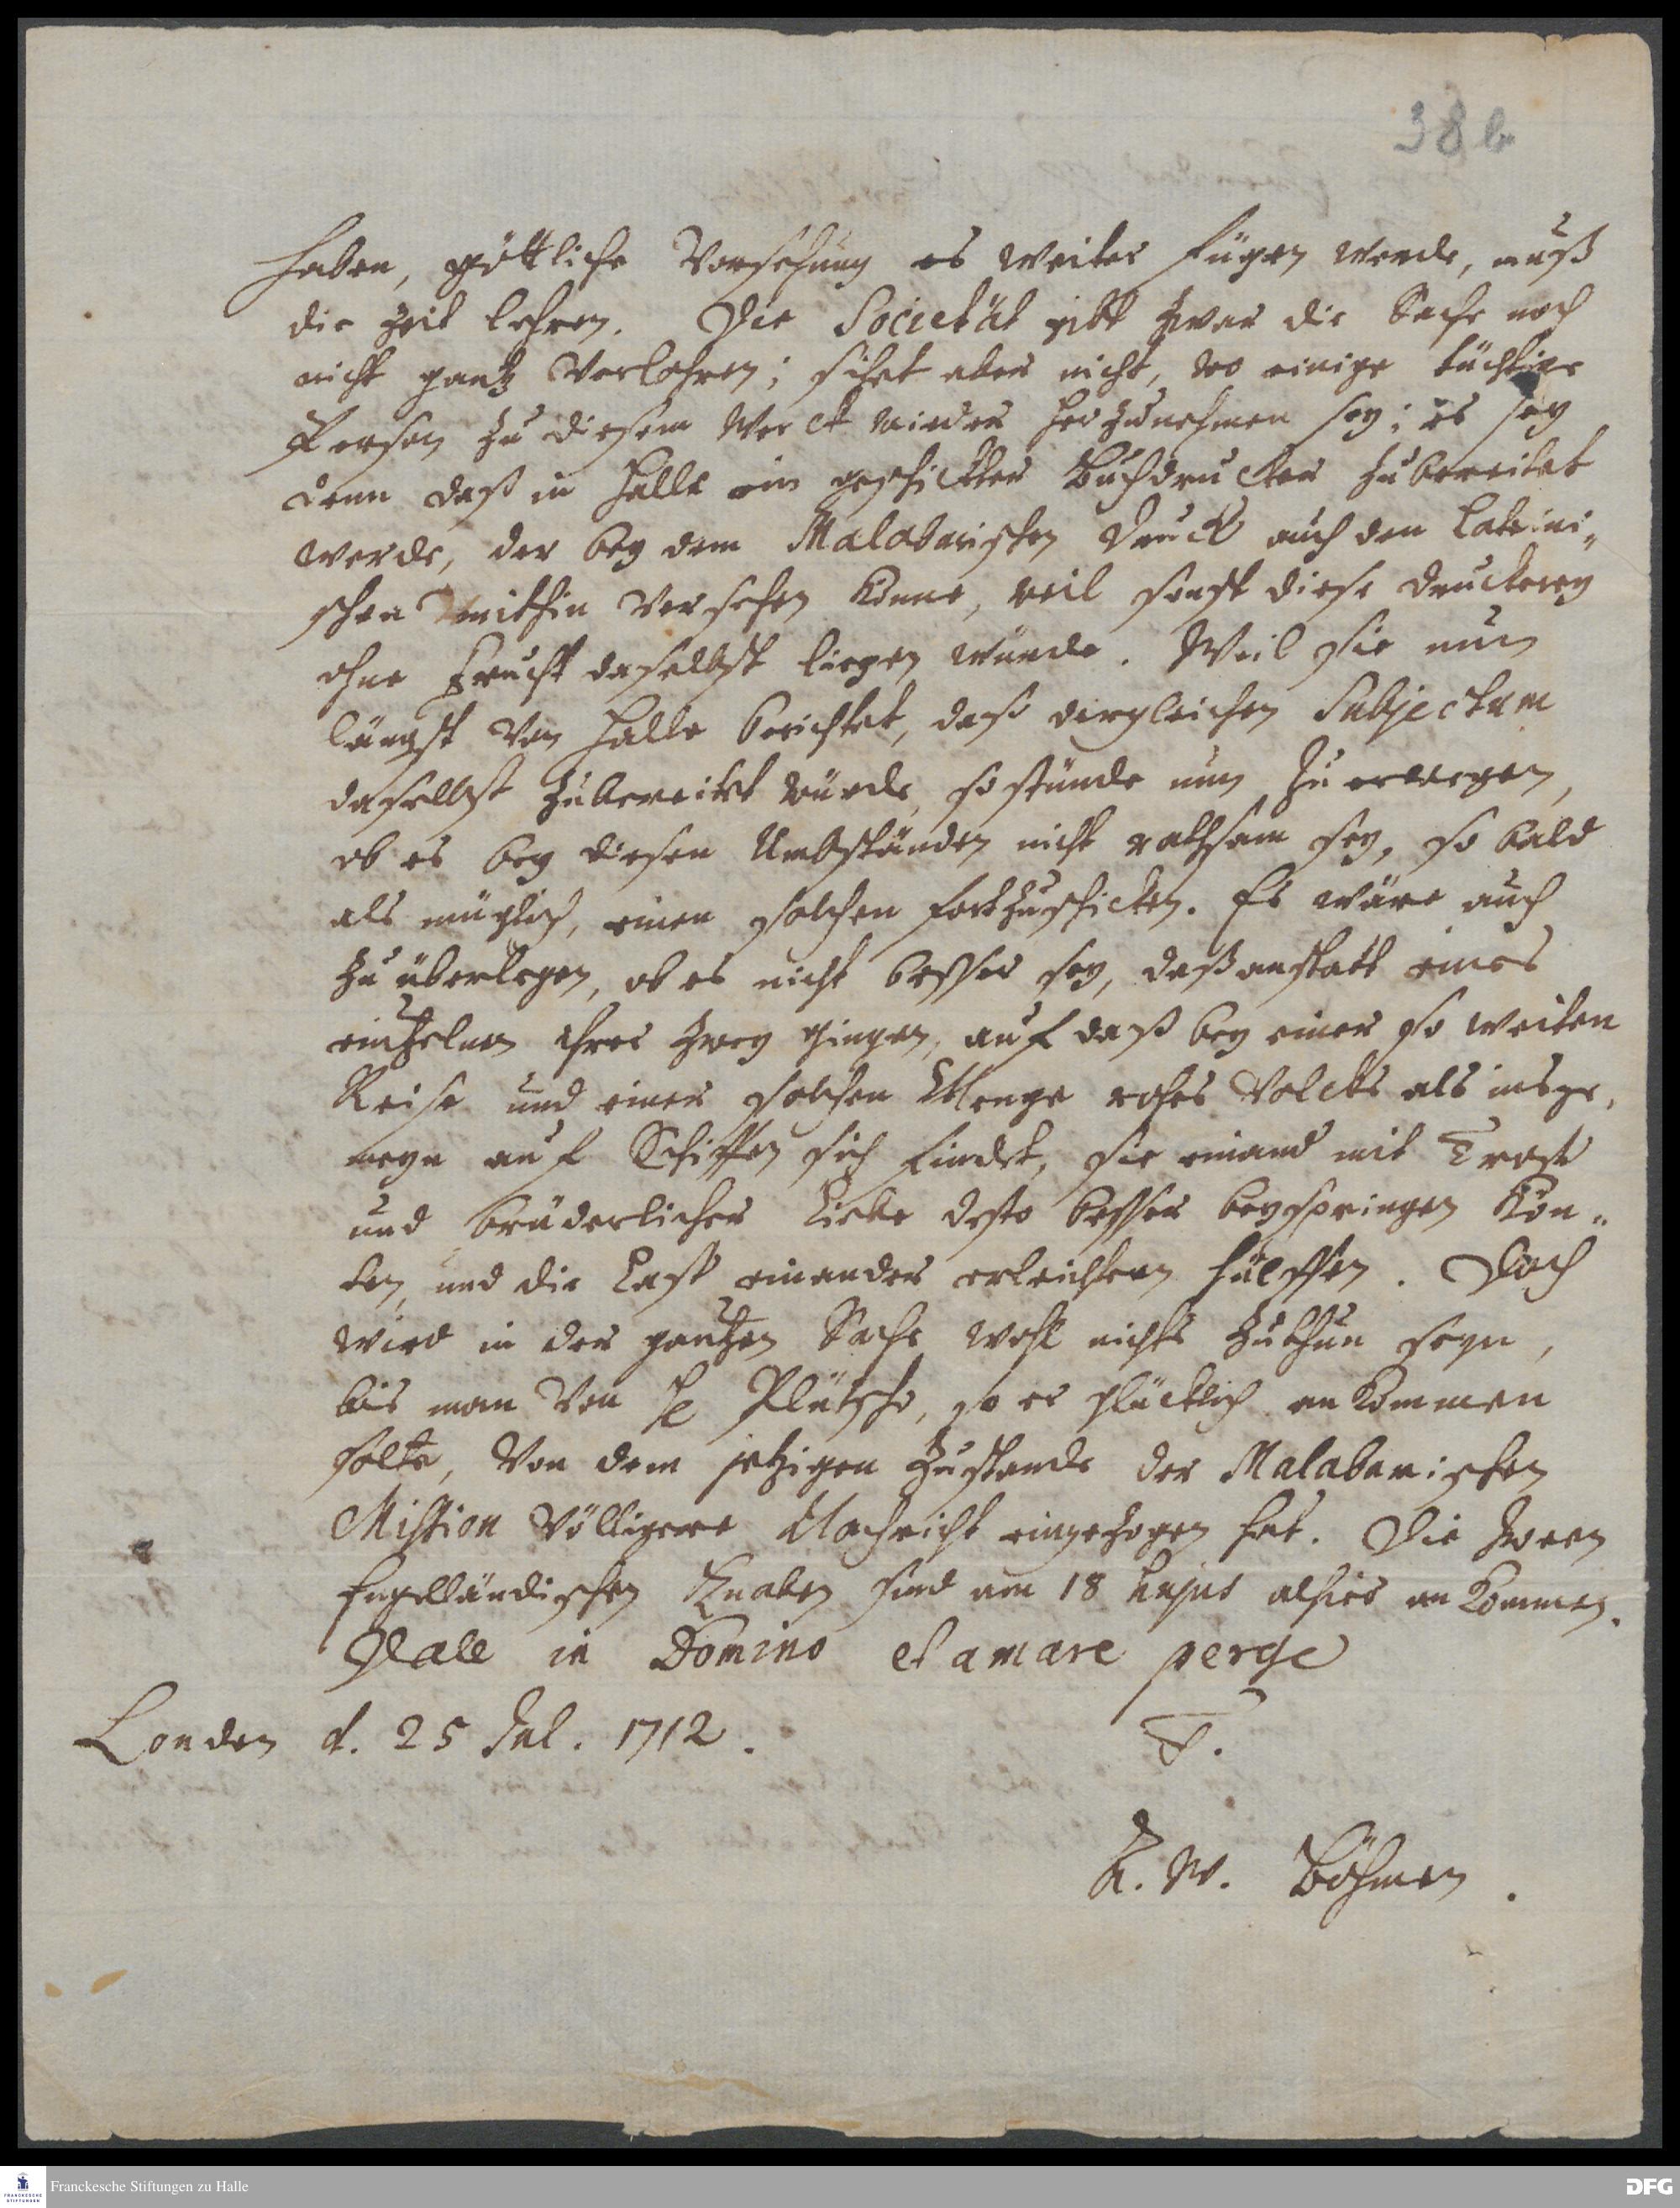 38 b
haben, göttliche Vorsehung es weiter fügen werde, muß
die Zeit lehren. Die Societät gibt zwar die Sache noch
nicht gantz verlohren; sihet aber nicht, wo einige tüchtige
Person zu diesem Werck wieder herzunehmen sey; es sey
denn daß in Halle ein geschickter Buchdrucker zubereitet
werde, der bey dem Malabarischen Druck auch den Lateini-
schen mithin versehen könne, weil sonst diese Druckerey
ohne Frucht daselbst liegen würde. Weil sie nun
längst von Halle berichtet, daß dergleichen Subjectum
daselbst zubereitet würde, so stünde nun zu erwegen,
ob es bey diesen Umbständen nicht rathsam sey, so bald
als müglich, einen solchen fortzuschicken. Es wäre auch
zu überlegen, ob es nicht besser sey, daß anstatt eines
eintzelnen ihrer zwey gingen, auf daß bey einer so weiten
Reise und einer solchen Menge rohes Volcks als insge-
meyn auf Schiffen sich findet, sie einand mit Trost
und brüderlicher Liebe desto besser beyspringen kön-
ten, und die Last einander erleichtern hülffen. Doch
wird in der gantzen Sache wohl nichts zuthun seyn,
bis man von H Plütscho, so er glücklich ankommen
solte, von dem jetzigen Zustande der Malabarischen
Mission völligere Nachricht eingezogen hat. Die zween
Engelländischen Knaben sind am 18 hujus alhier ankommen.
Vale in Domino et amare perge
Londen d. 25 Jul. 1712.
T.
A. W. Böhmen.
Franckesche Stiftungen zu Halle
FRANCKESCHE
STIFTUNGEN
DFG